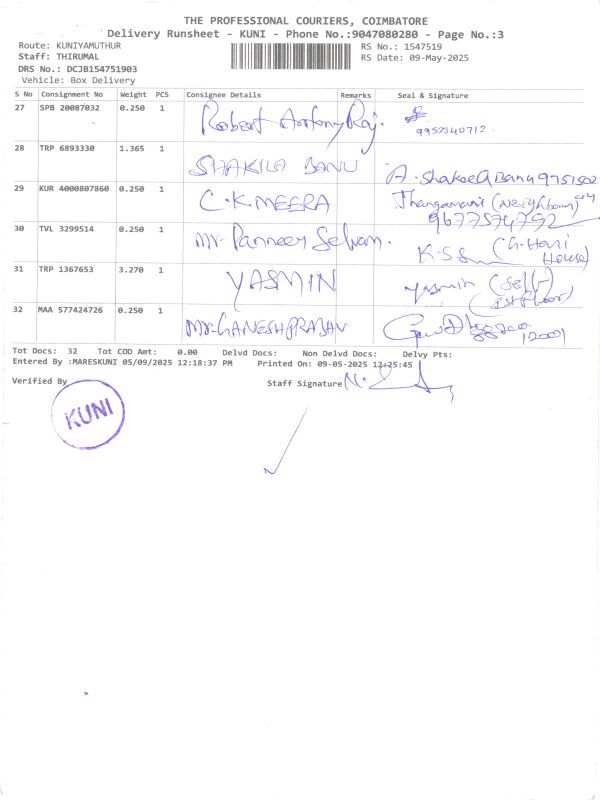 THE PROFESSIONAL COURIERS, COIMBATORE
Delivery Runsheet - KUNI - Phone No.:9047080280 - Page No.:3
Route: KUNIYAMUTHUR
RS No.: 1547519
Staff: THIRUMAL
RS Date: 09-May-2025
DRS No.: DCJB154751903
Vehicle: Box Delivery
S No Consignment No Weight PCS Consignee Details Remarks Seal & Signature
27 SPB 20087032 0.250 1 Robert Antony Raj.
9957340712
28 TRP 6893330 1.365 1 SHAKILA BANU A. Shakeela Banu 9751502
29 KUR 4000807860 0.250 1 C.K.MEERA Thangamani (Neighbour)
9677574792
30 TVL 3299514 0.250 1 Mr. Panneer Selvam. K.S.
House)
31 TRP 1367653 3.270 1 YASMIN Yasmin (Self)
(1st floor)
32 MAA 577424726 0.250 1 Mr. GANESHPRABAU
12001
Tot Docs: 32 Tot COD Amt: 0.00 Delvd Docs: Non Delvd Docs: Delvy Pts:
Entered By :MARESKUNI 05/09/2025 12:18:37 PM Printed On: 09-05-2025 12:25:45
Verified By
Staff Signature
KUNI